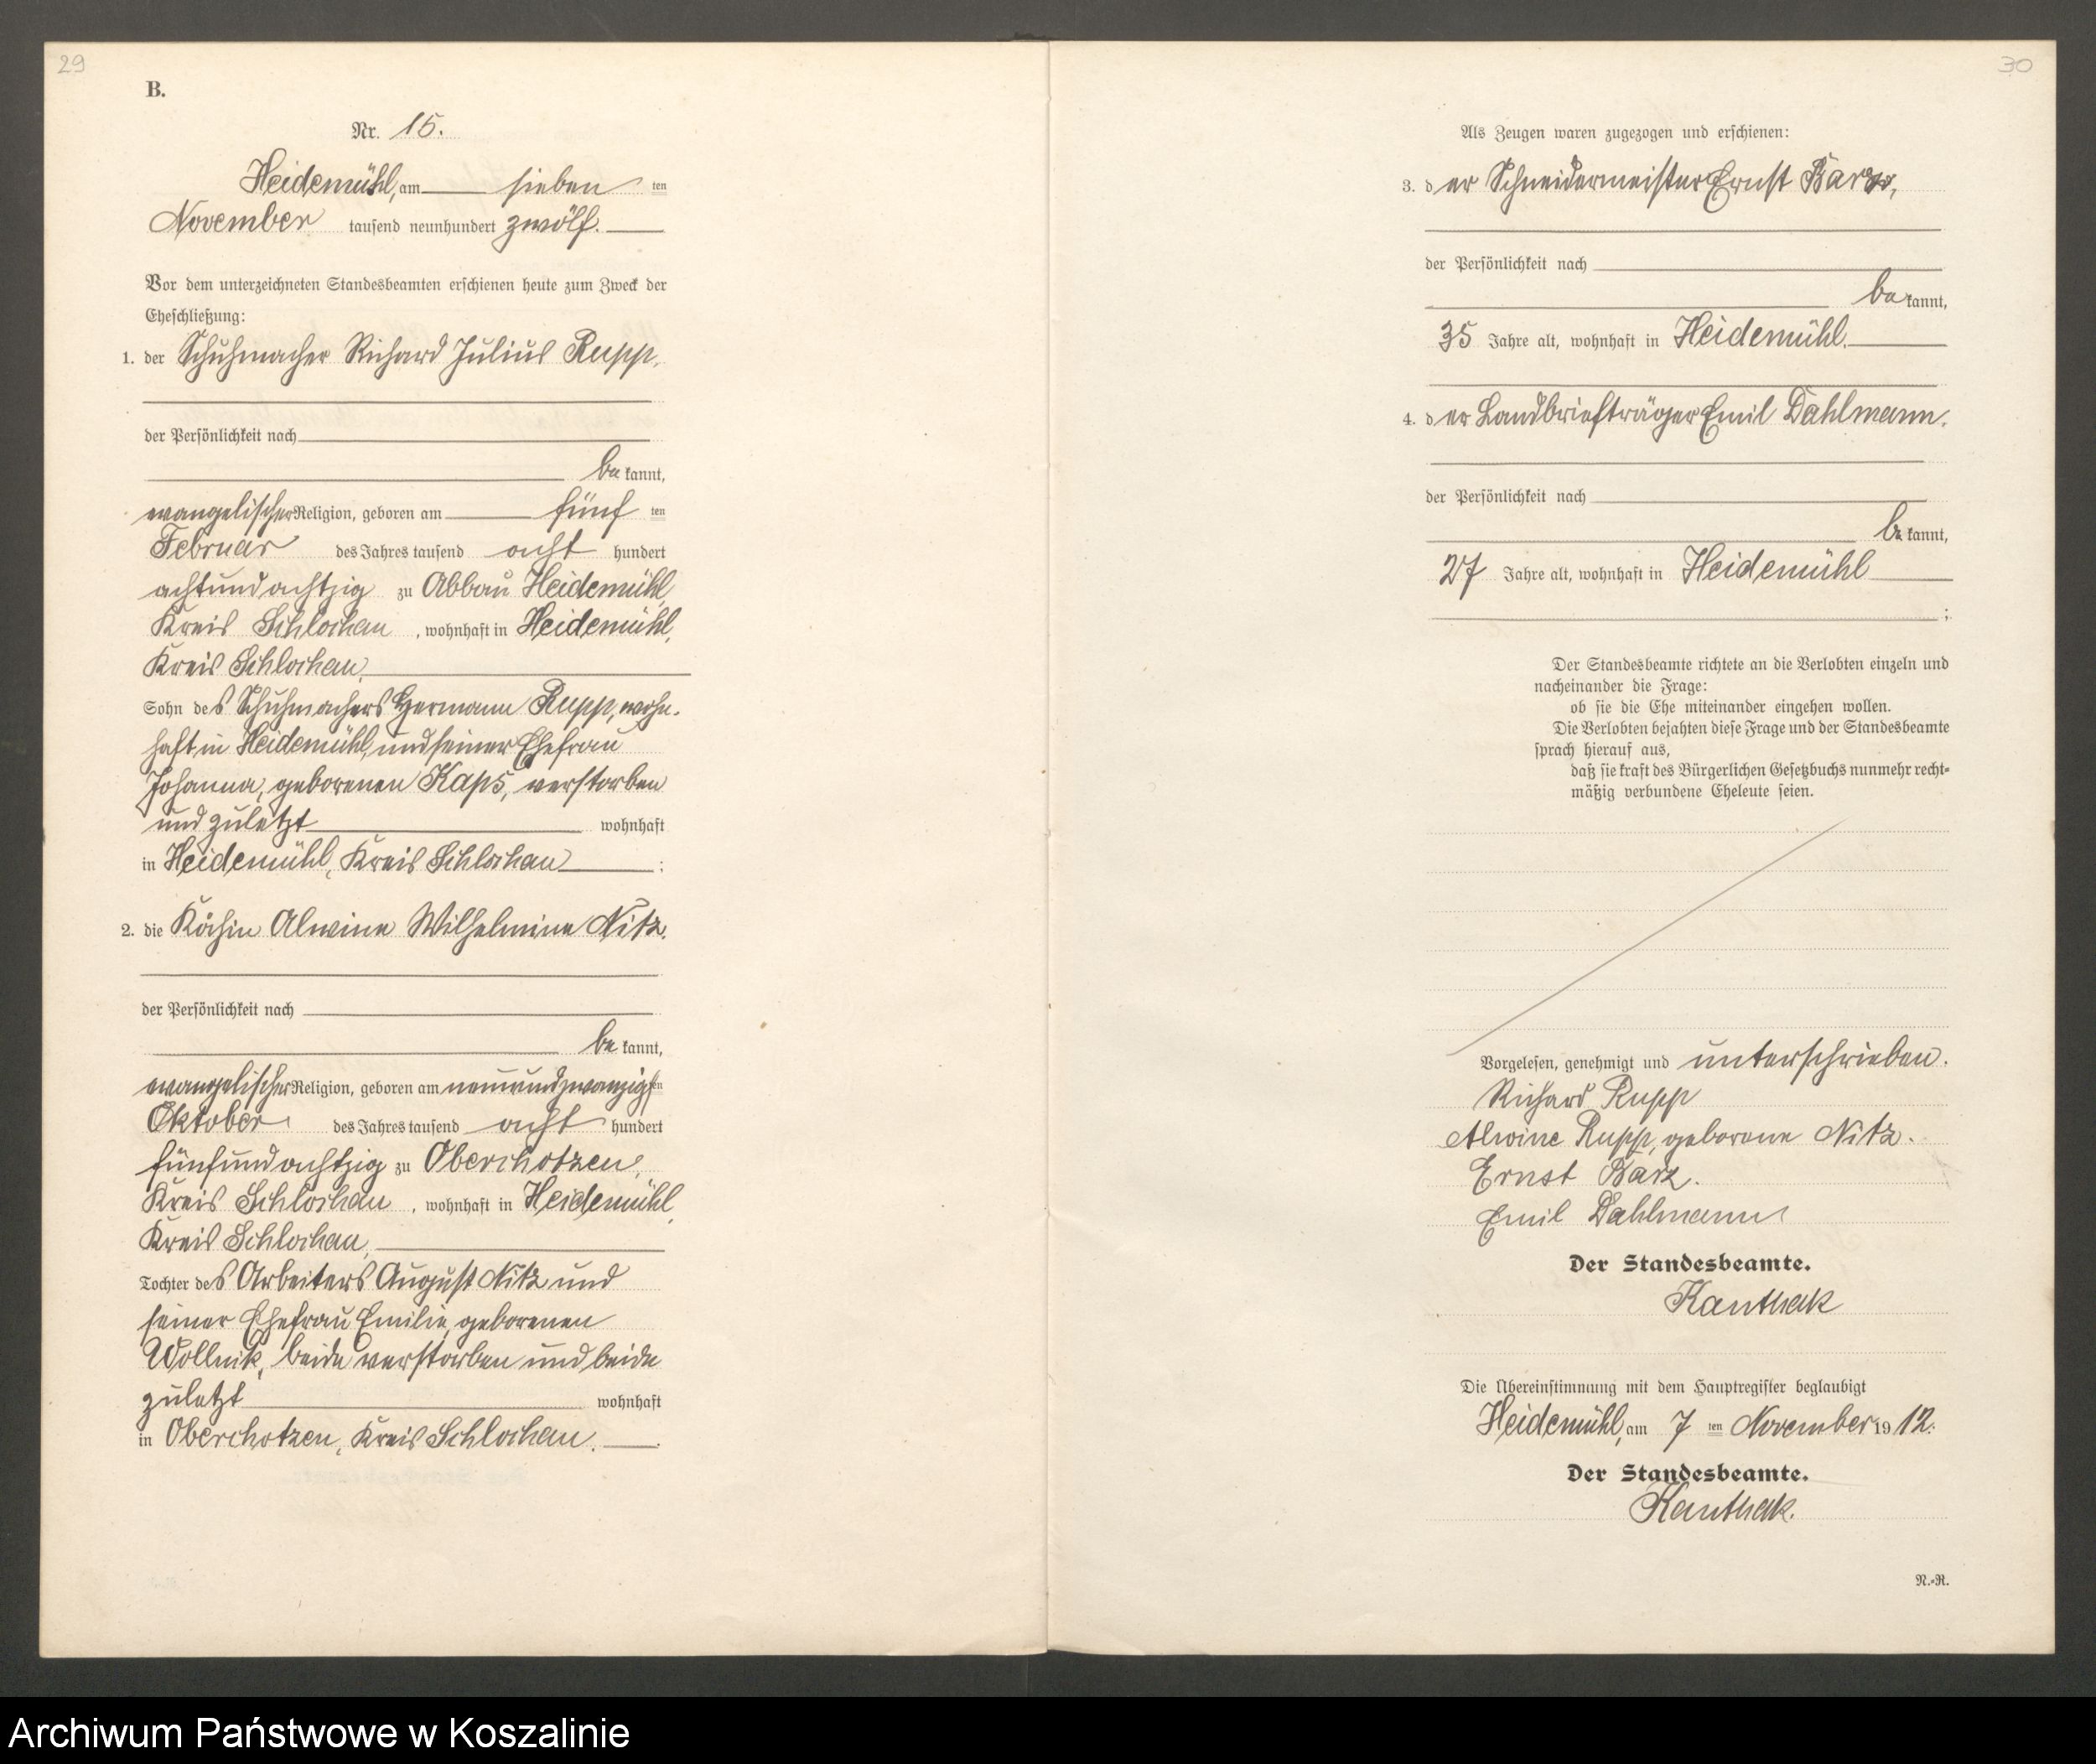 29
B.
Nr. 15.
Heidemühl, am sieben ten
November tausend neunhundert zwölf.
Vor dem unterzeichneten Standesbeamten erschienen heute zum Zweck der
Eheschließung:
1. der Schuhmacher Richard Julius Rupp,
der Persönlichkeit nach
be kannt,
evangelischer Religion, geboren am fünf ten
Februar des Jahres tausend acht hundert
achtundachtzig zu Abbau Heidemühl,
Kreis Schlochau, wohnhaft in Heidemühl,
Kreis Schlochau,
Sohn des Schuhmachers Hermann Rupp, wohn-
haft in Heidemühl, und seiner Ehefrau
Johanna, geborenen Kaps, verstorben
und zuletzt wohnhaft
in Heidemühl, Kreis Schlochau ;
2. die Köchin Alwine Wilhelmine Nitz.
der Persönlichkeit nach
be kannt,
evangelischer Religion, geboren am neunundzwanzigsten
Oktober des Jahres tausend acht hundert
fünfundachtzig zu Oberchotzen,
Kreis Schlochau, wohnhaft in Heidemühl,
Kreis Schlochau,
Tochter des Arbeiters August Nitz und
seiner Ehefrau Emilie, geborenen
Wollnik, beide verstorben und beide
zuletzt wohnhaft
in Oberchotzen, Kreis Schlochau.
30
Als Zeugen waren zugezogen und erschienen:
3. der Schneidermeister Ernst Barz,
der Persönlichkeit nach
be kannt,
35 Jahre alt, wohnhaft in Heidemühl.
4. der Landbriefträger Emil Dahlmann.
der Persönlichkeit nach
be kannt,
27 Jahre alt, wohnhaft in Heidemühl
;
Der Standesbeamte richtete an die Verlobten einzeln und
nacheinander die Frage:
ob sie die Ehe miteinander eingehen wollen.
Die Verlobten bejahten diese Frage und der Standesbeamte
sprach hierauf aus,
daß sie kraft des Bürgerlichen Gesetzbuchs nunmehr recht-
mäßig verbundene Eheleute seien.
Vorgelesen, genehmigt und unterschrieben.
Richard Rupp
Alwine Rupp, geborene Nitz.
Ernst Barz.
Emil Dahlmann
Der Standesbeamte.
Kanthak
Die Übereinstimmung mit dem Hauptregister beglaubigt
Heidemühl, am 7 ten November 1912.
Der Standesbeamte.
Kanthak.
N.-R.
Archiwum Państwowe w Koszalinie